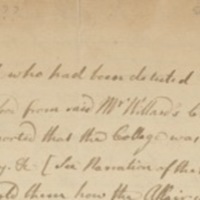 who had been detected
from said Mr Willard's
that the College was
&c [See Narration of the
them how the Affair